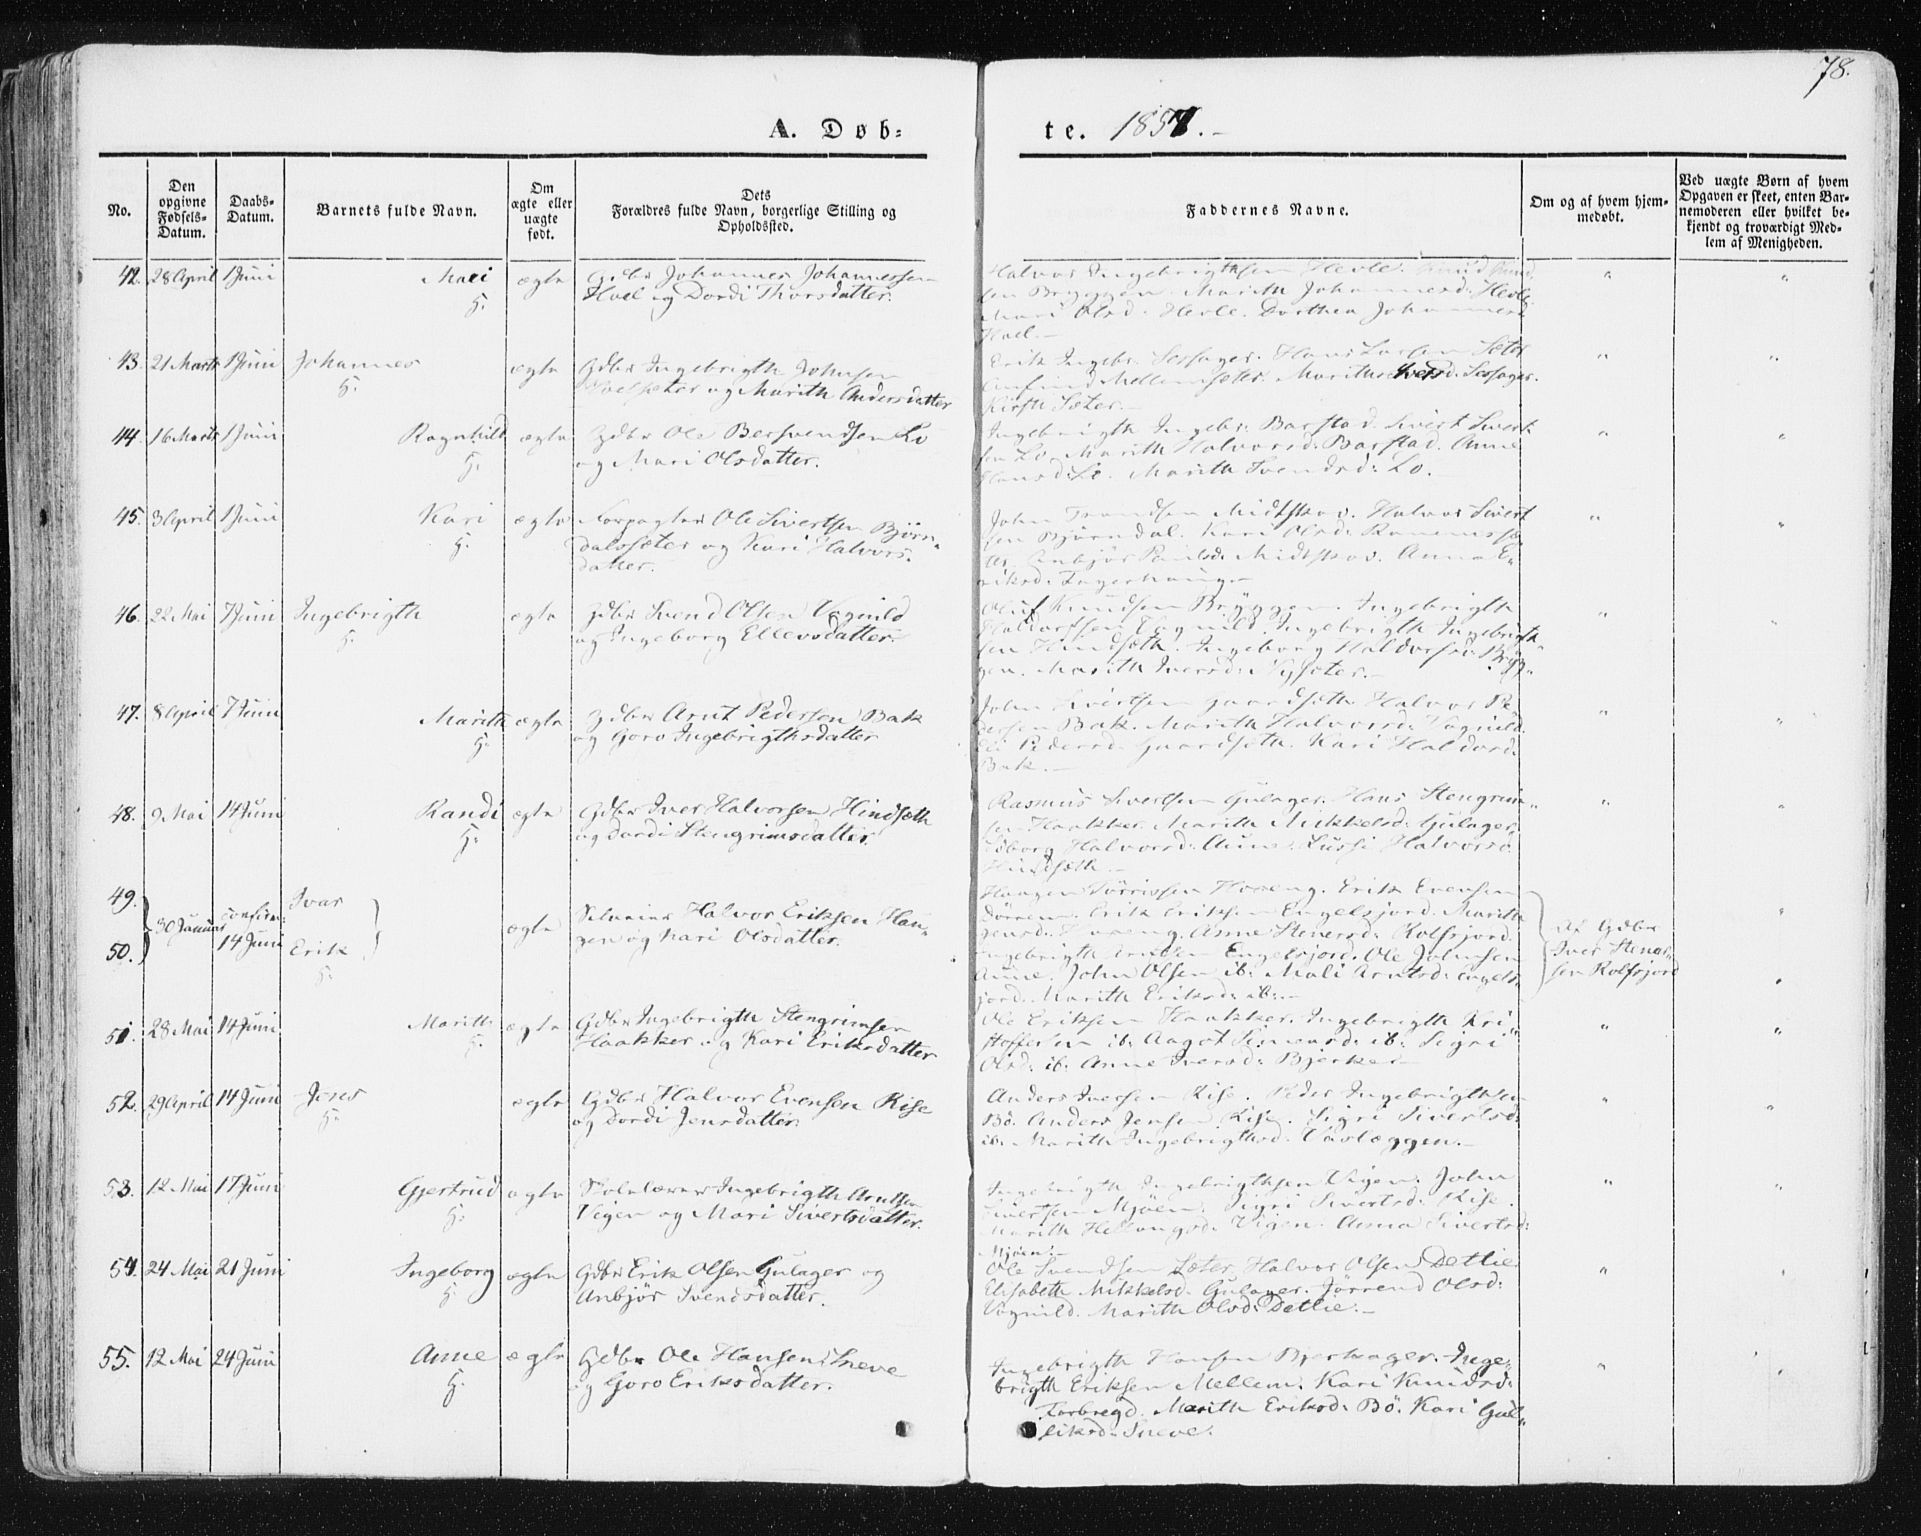 78.
A. Døb-
te. 1857.-
No.
Den opgivne Fødsels-Datum.
Daabs-Datum.
Barnets fulde Navn.
Om ægte eller uægte født.
Dets Forældres fulde Navn, borgerlige Stilling og Opholdssted.
Faddernes Navne.
Om og af hvem hjem-medøbt.
Ved uægte Børn af hvem Opgaven er skeet, enten Bar-nemoderen eller hvilket be-kjendt og troværdigt Med-lem af Menigheden.
42. 28 April 1 Juni Mari ægte Gdbr Johannes Johannessen
H. Hoel og Dordi Thorsdatter.
Halvor Ingebrigtsen Hevle. Knud Knud-
sen Bryggen. Marith Johannesd: Hevle
Mari Olsd. Hevle. Dorthea Johannesd
Hoel.-
43. 21 Marts 1 Juni Johannes ægte Gdbr Ingebrigth Johnsen
H. og Marith Andersdatter
Erik Ingebr. Hans Larsen Sæter
Mellemsæter.
Kirsti Sæter.-
44. 16 Marts 1 Juni Ragnhild ægte Gdbr Ole Bersvendsen Lo
H. og Mari Olsdatter.
Ingebrigth Ingebr. Barstad. Sivert Sivert
sen Lo. Marith Halvorsd: Barstad. Anne
Hansd: Lo. Marith Svendsd: Lo.-
45. 3 April 1 Juni Kari ægte Forpagter Ole Sivertsen Björn-
H. dalssæter og Kari Halvors-
datter.
John Trondsen Midtskov. Halvor Sivert
sen Bjørndal. Kari Olsd:
Anbjør Midtskov. Anne E-
riksd:
46. 22 Mai 7 Juni Ingebrigth ægte Gdbr Svend Olsen Vognild
H. og Ingeborg Ellevsdatter.
Oluf Knudsen Bryggen. Ingebrigth
Haldorsen Vognild. Ingebrigth Ingebrigth-
sen Hindseth. Ingeborg Haldorsd: Brÿg-
gen. Marith Iversd:
47. 8 April 7 Juni Marith ægte Gdbr Arnt Pedersen Bak
H. og Goro Ingebrigthsdatter
John Sivertsen Gaardseth. Halvor Pe-
dersen Bak. Marith Halvorsd: Vognild.
Pedersd: Gaardseth. Kari Haldorsd:
Bak.-
48. 9 Mai 14 Juni Randi ægte Gdbr Iver Halvorsen Hindseth
H. og Dordi Stengrimsdatter.
Rasmus Sivertsen Gulager. Hans Stengrim-
sen Haakker. Marith Mikkelsd: Gulager.
Halvorsd: Aune. Halvorsd
Hindseth.-
49. 30 Januar confirm: Ivar
50. 14 Juni Erik ægte Halvor Eriksen Hau-
H. gen og Kari Olsdatter.
Haagen Hoveng. Erik Evensen
Dörrem. Erik Eriksen Engelsjord. Marith
Hoveng. Anne Stenersd: Rolfsjord.
Ingebrigth Engelsjord. Ole Johnsen
Aune. John Olsen ib: Mali Arntsd: Engels-
jord. Marith Eriksd: ib:-
Af Gdbr
Iver
sen Rolfsjord
51. 28 Mai 14 Juni Marith ægte Gdbr Ingebrigth Stengrimsen
H. Haakker og Kari Eriksdatter
Ole Eriksen Haakker. Ingebrigth Kri-
stoffersen ib: Aagot ib: Sigri
Olsd: ib: Anne Iversd: Bjerker-
52. 29 April 14 Juni Jens ægte Gdbr Halvor Evensen Rise
H. og Dordi Jensdatter.
Anders Iversen Rise. Peder Ingebrigthsen
Bö. Anders Jensen Rise. Sigri Sivertsd:
ib: Marith Ingebrigthsd: Vævlæggen.-
53. 12 Mai 17 Juni Gjertrud ægte Skolelærer Ingebrigth Arntsen
H. Vigen og Mari Sivertsdatter.
Ingebrigth Ingebrigthsen Vigen. John
Sivertsen Mjöen. Sigri Sivertsd: Rise.
Marith Vigen. Anna Sivertsd:
Mjöen:-
54. 24 Mai 21 Juni Ingeborg ægte Gdbr Erik Olsen Gulager og
H. Anbjör Svendsdatter.
Ole Svendsen Sæter. Halvor Olsen Detlie.
Elisabeth Mikkelsd. Gulager. Jörrend Olsd:
Vognild. Marith Olsd: Detlie.-
55. 12 Mai 24 Juni Anne ægte Gdbr Ole Hansen Sneve
H. og Goro Eriksdatter.
Ingebrigth Hansen Bjerkager. Inge-
brigth Eriksen Mellem. Kari Knudsd:
Forbregd. Marith Eriksd: Bö. Kari Gul-
liksd: Sneve.